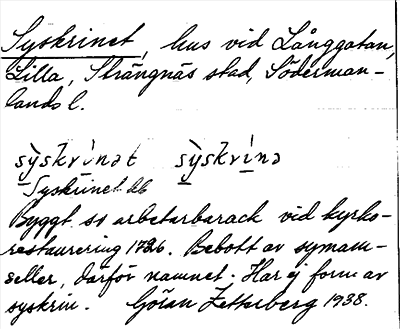 Syskrinet, hus vid Långgatan,
Lilla, Strängnäs stad, Söderman-
lands l.
sỳskrìnət sỳskrìnə
Syskrinet
Byggt ss arbetarbarack vid kyrko-
restaurering 1726. Bebott av symam-
seller, därför namnet. Har ej form av
syskrin. Göran Zetterberg 1938.